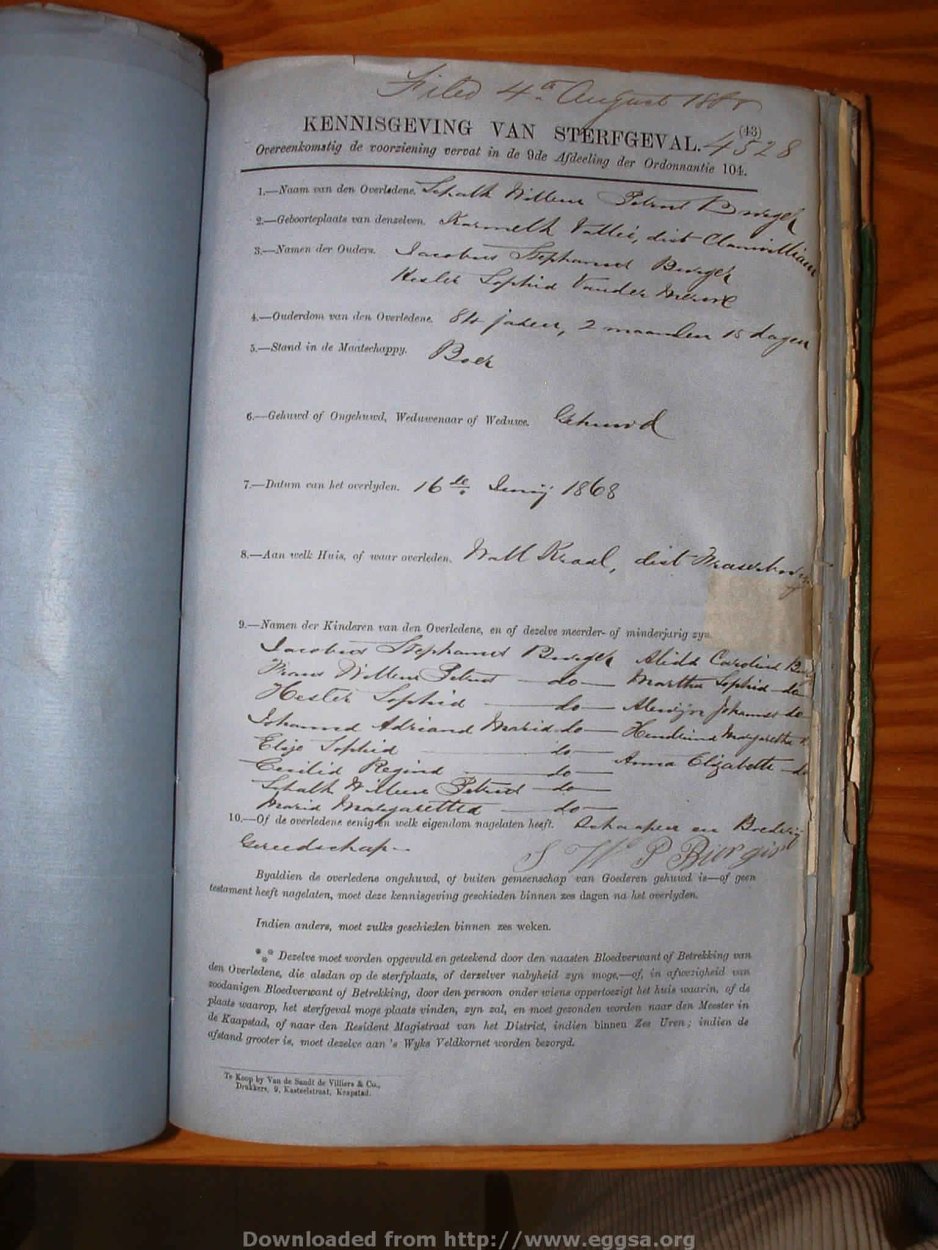 Filed 4th August
(43)
KENNISGEVING VAN STERFGEVAL. 4528
Overeenkomstig de voorziening vervat in de 9de Afdeeling der Ordonnantie 104.
1.—Naam van den Overledene. Schalk Willem Petrus Burger
2.—Geboorteplaats van denzelven. Vallei, dist Clanwilliam
3.—Namen der Ouders. Jacobus Stephanus Burger
Hester Sophia Van der Merwe
4.—Ouderdom van den Overledene. 84 jaren, 2 maanden 15 dagen
5.—Stand in de Maatschappy. Boer
6.—Gehuwd of Ongehuwd, Weduwenaar of Weduwe. Gehuwd
7.—Datum van het overlyden. 16de Junij 1868
8.—Aan welk Huis, of waar overleden. Kraal, dist
9.—Namen der Kinderen van den Overledene, en of dezelve meerder- of minderjarig zyn
Jacobus Stephanus Burger Alida Carolina
Frans Willem Petrus — do — Martha Sophia — do
Hester Sophia — do — Alewijn Johannes do
Johanna Adriana Maria do — Hendrina Margaretha
Elsje Sophia — do — Anna Elizabetta — do
Cecilia Regina — do —
Schalk Willem Petrus — do —
Maria Margaretha — do —
10.—Of de overledene eenig en welk eigendom nagelaten heeft. Schaapen en Boerdery
Gereedschap
S W P Burger
Byaldien de overledene ongehuwd, of buiten gemeenschap van Goederen gehuwd is—of geen
testament heeft nagelaten, moet deze kennisgeving geschieden binnen zes dagen na het overlyden.
Indien anders, moet zulks geschieden binnen zes weken.
*** Dezelve moet worden opgevuld en geteekend door den naasten Bloedverwant of Betrekking van
den Overledene, die alsdan op de sterfplaats, of derzelver nabyheid zyn moge,—of, in afwezigheid van
zoodanigen Bloedverwant of Betrekking, door den persoon onder wiens oppertoezigt het huis waarin, of de
plaats waarop, het sterfgeval moge plaats vinden, zyn zal, en moet gezonden worden naar den Meester in
de Kaapstad, of naar den Resident Magistraat van het District, indien binnen Zes Uren; indien de
afstand grooter is, moet dezelve aan 's Wyks Veldkornet worden bezorgd.
Te Koop by Van de Sandt de Villiers & Co.,
Drukkers, 9, Kasteelstraat, Kaapstad.
Downloaded from http://www.eggsa.org